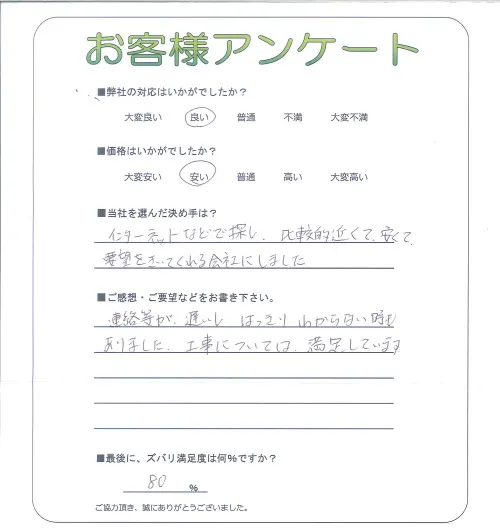 お客様アンケート
■弊社の対応はいかがでしたか?
大変良い 良い 普通 不満 大変不満
■価格はいかがでしたか?
大変安い 安い 普通 高い 大変高い
■当社を選んだ決め手は?
インターネットなどで探し、比較的近くて、安くて、
要望をきいてくれる会社にしました
■ご感想・ご要望などをお書き下さい。
連絡等が、遅いし はっきりわからない時も
ありました、工事については、満足しています
■最後に、ズバリ満足度は何%ですか?
80 %
ご協力頂き、誠にありがとうございました。